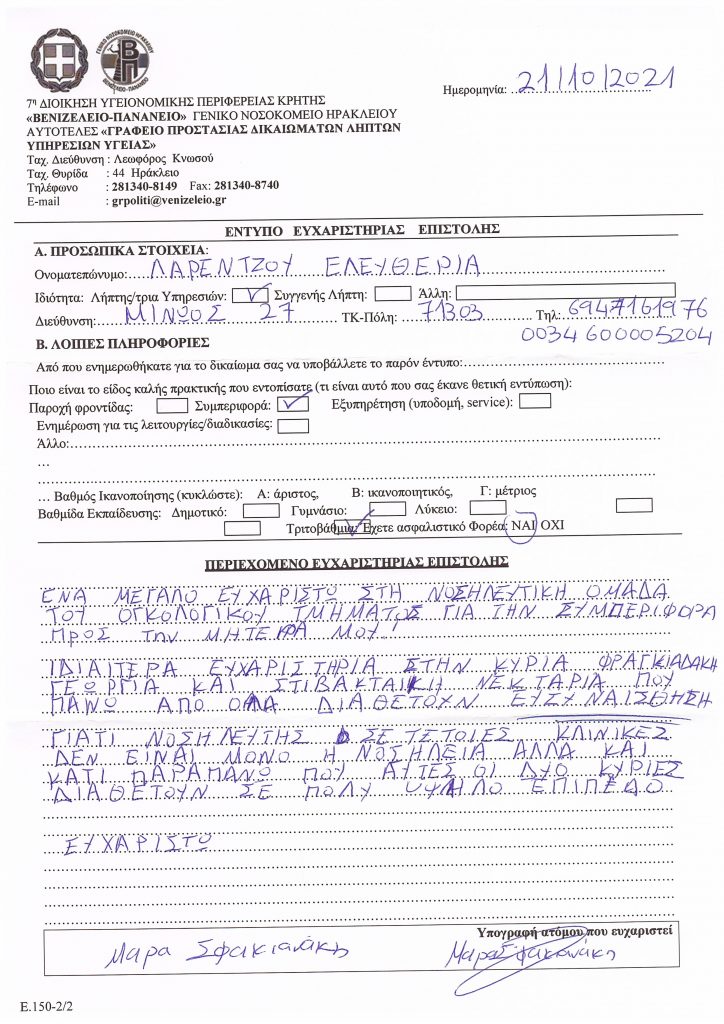 ΓΕΝΙΚΟ ΝΟΣΟΚΟΜΕΙΟ ΗΡΑΚΛΕΙΟΥ
ΒΕΝΙΖΕΛΕΙΟ-ΠΑΝΑΝΕΙΟ
Ημερομηνία: 21/10/2021
7η ΔΙΟΙΚΗΣΗ ΥΓΕΙΟΝΟΜΙΚΗΣ ΠΕΡΙΦΕΡΕΙΑΣ ΚΡΗΤΗΣ
«ΒΕΝΙΖΕΛΕΙΟ-ΠΑΝΑΝΕΙΟ» ΓΕΝΙΚΟ ΝΟΣΟΚΟΜΕΙΟ ΗΡΑΚΛΕΙΟΥ
ΑΥΤΟΤΕΛΕΣ «ΓΡΑΦΕΙΟ ΠΡΟΣΤΑΣΙΑΣ ΔΙΚΑΙΩΜΑΤΩΝ ΛΗΠΤΩΝ
ΥΠΗΡΕΣΙΩΝ ΥΓΕΙΑΣ»
Ταχ. Διεύθυνση : Λεωφόρος Κνωσού
Ταχ. Θυρίδα : 44 Ηράκλειο
Τηλέφωνο : 281340-8149 Fax: 281340-8740
E-mail : grpoliti@venizeleio.gr
ΕΝΤΥΠΟ ΕΥΧΑΡΙΣΤΗΡΙΑΣ ΕΠΙΣΤΟΛΗΣ
Α. ΠΡΟΣΩΠΙΚΑ ΣΤΟΙΧΕΙΑ:
Ονοματεπώνυμο: ΛΑΡΕΝΤΖΟΥ ΕΛΕΥΘΕΡΙΑ
Ιδιότητα: Λήπτης/τρια Υπηρεσιών: ✓ Συγγενής Λήπτη: Άλλη:
Διεύθυνση: ΜΙΝΩΟΣ 27 ΤΚ-Πόλη: 71303 Τηλ: 6947161976
0034 600005204
Β. ΛΟΙΠΕΣ ΠΛΗΡΟΦΟΡΙΕΣ
Από που ενημερωθήκατε για το δικαίωμα σας να υποβάλλετε το παρόν έντυπο:
Ποιο είναι το είδος καλής πρακτικής που εντοπίσατε (τι είναι αυτό που σας έκανε θετική εντύπωση):
Παροχή φροντίδας: Συμπεριφορά: ✓ Εξυπηρέτηση (υποδομή, service):
Ενημέρωση για τις λειτουργίες/διαδικασίες:
Άλλο:
…
… Βαθμός Ικανοποίησης (κυκλώστε): Α: άριστος, Β: ικανοποιητικός, Γ: μέτριος
Βαθμίδα Εκπαίδευσης: Δημοτικό: Γυμνάσιο: Λύκειο:
Τριτοβάθμια: ✓ Έχετε ασφαλιστικό Φορέα: ΝΑΙ ΟΧΙ
ΠΕΡΙΕΧΟΜΕΝΟ ΕΥΧΑΡΙΣΤΗΡΙΑΣ ΕΠΙΣΤΟΛΗΣ
ΕΝΑ ΜΕΓΑΛΟ ΕΥΧΑΡΙΣΤΩ ΣΤΗ ΝΟΣΗΛΕΥΤΙΚΗ ΟΜΑΔΑ
ΤΟΥ ΟΓΚΟΛΟΓΙΚΟΥ ΤΜΗΜΑΤΟΣ ΓΙΑ ΤΗΝ ΣΥΜΠΕΡΙΦΟΡΑ
ΠΡΟΣ ΤΗΝ ΜΗΤΕΡΑ ΜΟΥ!
ΙΔΙΑΙΤΕΡΑ ΕΥΧΑΡΙΣΤΗΡΙΑ ΣΤΗΝ ΚΥΡΙΑ ΦΡΑΓΚΙΑΔΑΚΗ
ΓΕΩΡΓΙΑ ΚΑΙ ΣΤΙΒΑΚΤΑΚΗ ΝΕΚΤΑΡΙΑ ΠΟΥ
ΠΑΝΩ ΑΠΟ ΟΛΑ ΔΙΑΘΕΤΟΥΝ ΕΥΣΥΝΑΙΣΘΗΣΗ
ΓΙΑΤΙ ΝΟΣΗΛΕΥΤΗΣ ΣΕ ΤΕΤΟΙΕΣ ΚΛΙΝΙΚΕΣ
ΔΕΝ ΕΙΝΑΙ ΜΟΝΟ Η ΝΟΣΗΛΕΙΑ ΑΛΛΑ ΚΑΙ
ΚΑΤΙ ΠΑΡΑΠΑΝΩ ΠΟΥ ΑΥΤΕΣ ΟΙ ΔΥΟ ΚΥΡΙΕΣ
ΔΙΑΘΕΤΟΥΝ ΣΕ ΠΟΛΥ ΥΨΗΛΟ ΕΠΙΠΕΔΟ
ΕΥΧΑΡΙΣΤΩ
Υπογραφή ατόμου που ευχαριστεί
Μαρα Σφακιανάκη Μαρα Σφακιανάκη
Ε.150-2/2